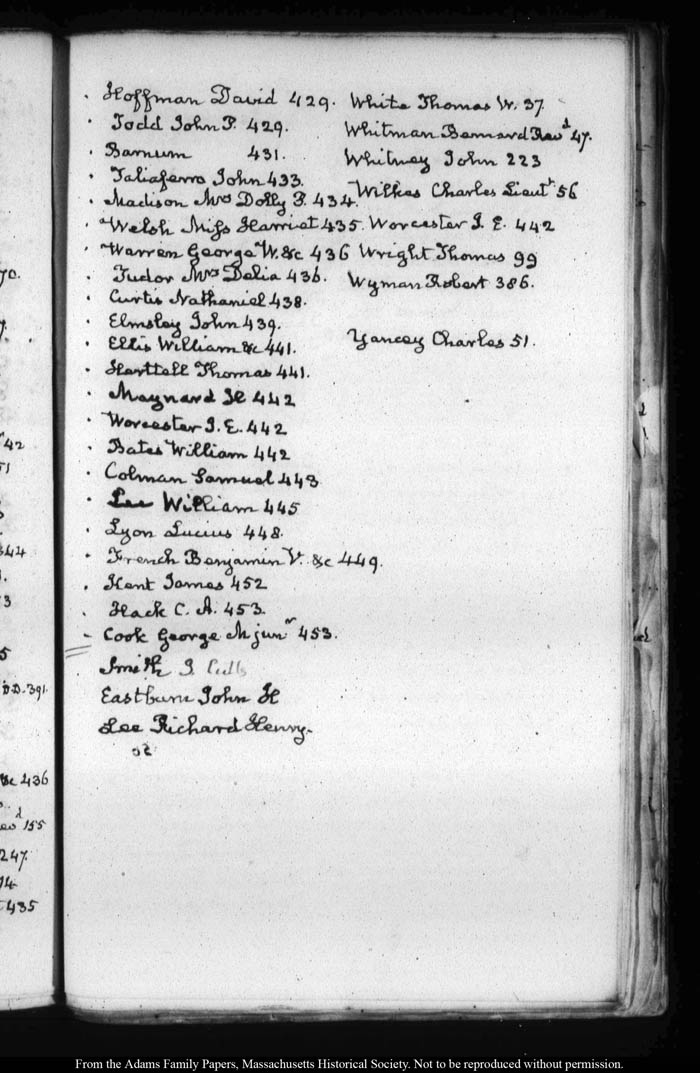 70.
7.
42
51
344
1.
3
5
D.D. 391.
&c 436
d
155
247.
14
435
. Hoffman David 429.
. Todd John P. 429.
. Barnum 431.
. Taliaferro John 433.
. Madison Mrs Dolly P. 434.
. Welsh Miss Harriet 435.
. Warren George W. &c 436
. Tudor Mrs Delia 436.
. Curtis Nathaniel 438.
. Elmsley John 439.
. Ellis William &c 441.
. Harttell Thomas 441.
. Maynard H 442
. Worcester J. E. 442
. Bates William 442
. Colman Samuel 443
. Lee William 445
. Lyon Lucius 448.
. French Benjamin V. &c 449.
. Kent James 452
. Hack C. A. 453.
- Cook George M junr 453.
Smith J.
Eastburn John H
Lee Richard Henry.
White Thomas W. 37.
Whitman Bernard Revd 47.
Whitney John 223
Wilkes Charles Lieutt 56
Worcester J. E. 442
Wright Thomas 99
Wyman Robert 386.
Yancey Charles 51.
From the Adams Family Papers, Massachusetts Historical Society. Not to be reproduced without permission.